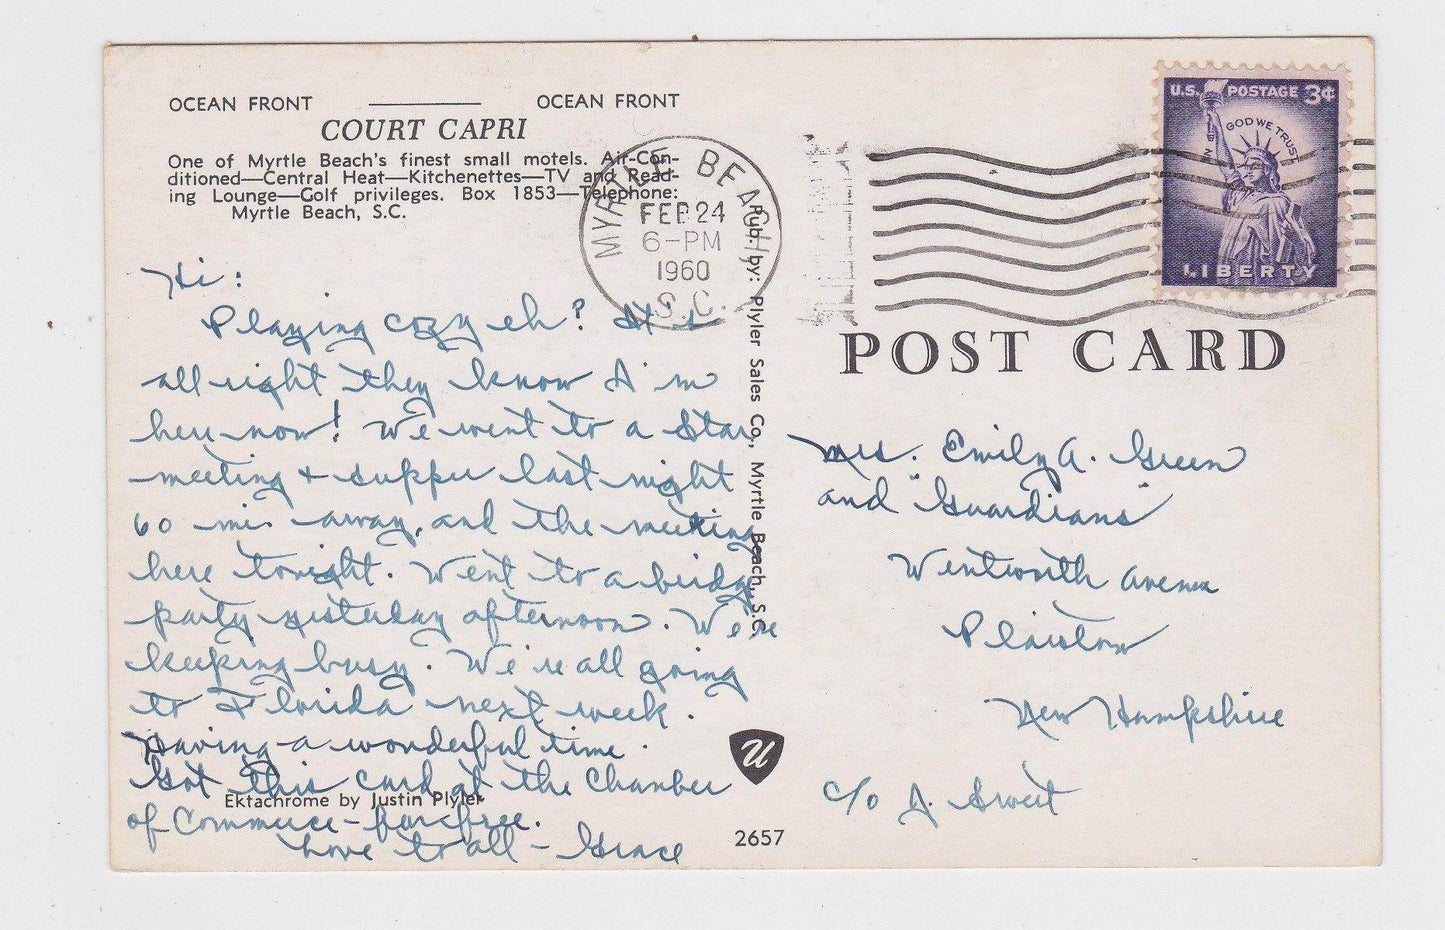 OCEAN FRONT ———— OCEAN FRONT
COURT CAPRI
One of Myrtle Beach's finest small motels. Air-Con-
ditioned—Central Heat—Kitchenettes—TV and Read-
ing Lounge—Golf privileges. Box 1853—Telephone:
Myrtle Beach, S.C.
MYRTLE BEACH
FEB 24
6-PM
1960
S.C.
U.S. POSTAGE 3¢
IN GOD WE TRUST
LIBERTY
POST CARD
Hi:
Playing cozy eh? It's
all right they know I'm
here now! We went to a Star
meeting + supper last night
60 mi. away, and the meeting
here tonight. Went to a bridge
party yesterday afternoon. We're
keeping busy. We're all going
to Florida next week.
Having a wonderful time.
Got this card at the Chamber
of Commerce - for free.
Love to all - Grace
Ektachrome by Justin Plyler
Pub. by: Plyler Sales Co., Myrtle Beach, S.C.
U
2657
Mrs. Emily A. Green
and "Guardians"
Wentworth Avenue
Plaistow
New Hampshire
c/o A. Sweet